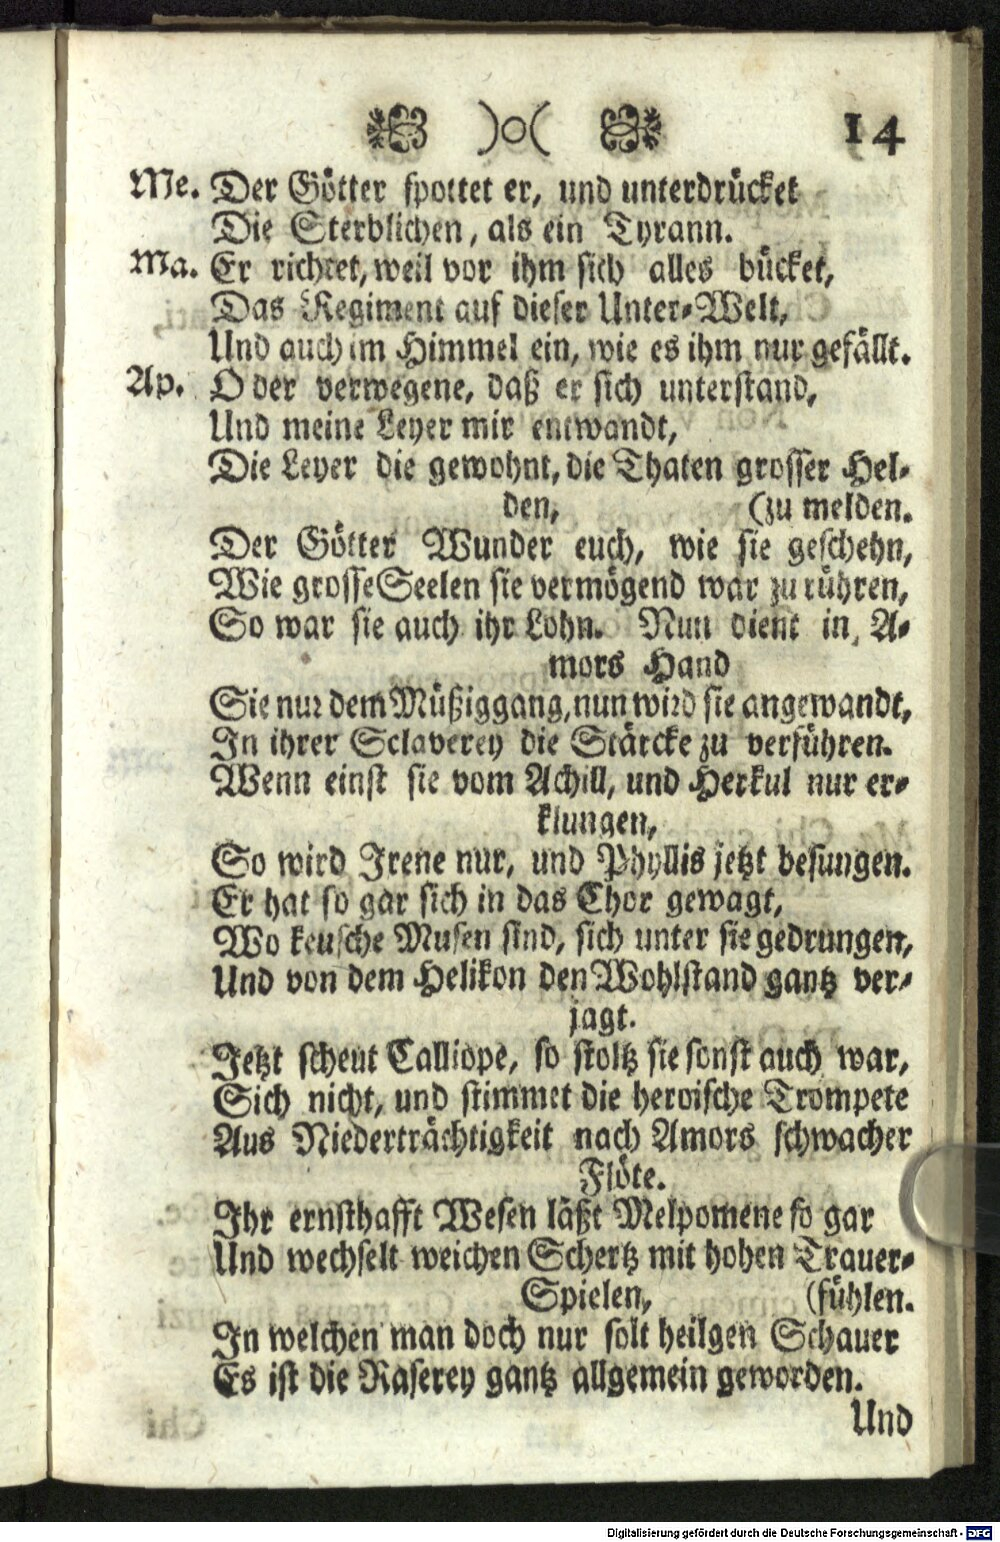 )o( 14
Me. Der Götter spottet er, und unterdrücket
Die Sterblichen, als ein Tyrann.
Ma. Er richtet, weil vor ihm sich alles bücket,
Das Regiment auf dieser Unter-Welt,
Und auch im Himmel ein, wie es ihm nur gefällt.
Ap. O der verwegene, daß er sich unterstand,
Und meine Leyer mir entwandt,
Die Leyer die gewohnt, die Thaten grosser Hel-
den, (zu melden.
Der Götter Wunder euch, wie sie geschehn,
Wie grosse Seelen sie vermögend war zu rühren,
So war sie auch ihr Lohn. Nun dient in A-
mors Hand
Sie nur dem Müßiggang, nun wird sie angewandt,
In ihrer Sclaverey die Stärcke zu verführen.
Wenn einst sie vom Achill, und Herkul nur er-
klungen,
So wird Irene nur, und Phyllis jetzt besungen.
Er hat so gar sich in das Chor gewagt,
Wo keusche Musen sind, sich unter sie gedrungen,
Und von dem Helikon den Wohlstand gantz ver-
jagt.
Jetzt scheut Calliope, so stoltz sie sonst auch war,
Sich nicht, und stimmet die heroische Trompete
Aus Niederträchtigkeit nach Amors schwacher
Flöte.
Ihr ernsthafft Wesen läßt Melpomene so gar
Und wechselt weichen Schertz mit hohen Trauer-
Spielen, (fühlen.
In welchen man doch nur solt heilgen Schauer
Es ist die Raserey gantz allgemein geworden.
Und
Digitalisierung gefördert durch die Deutsche Forschungsgemeinschaft - DFG